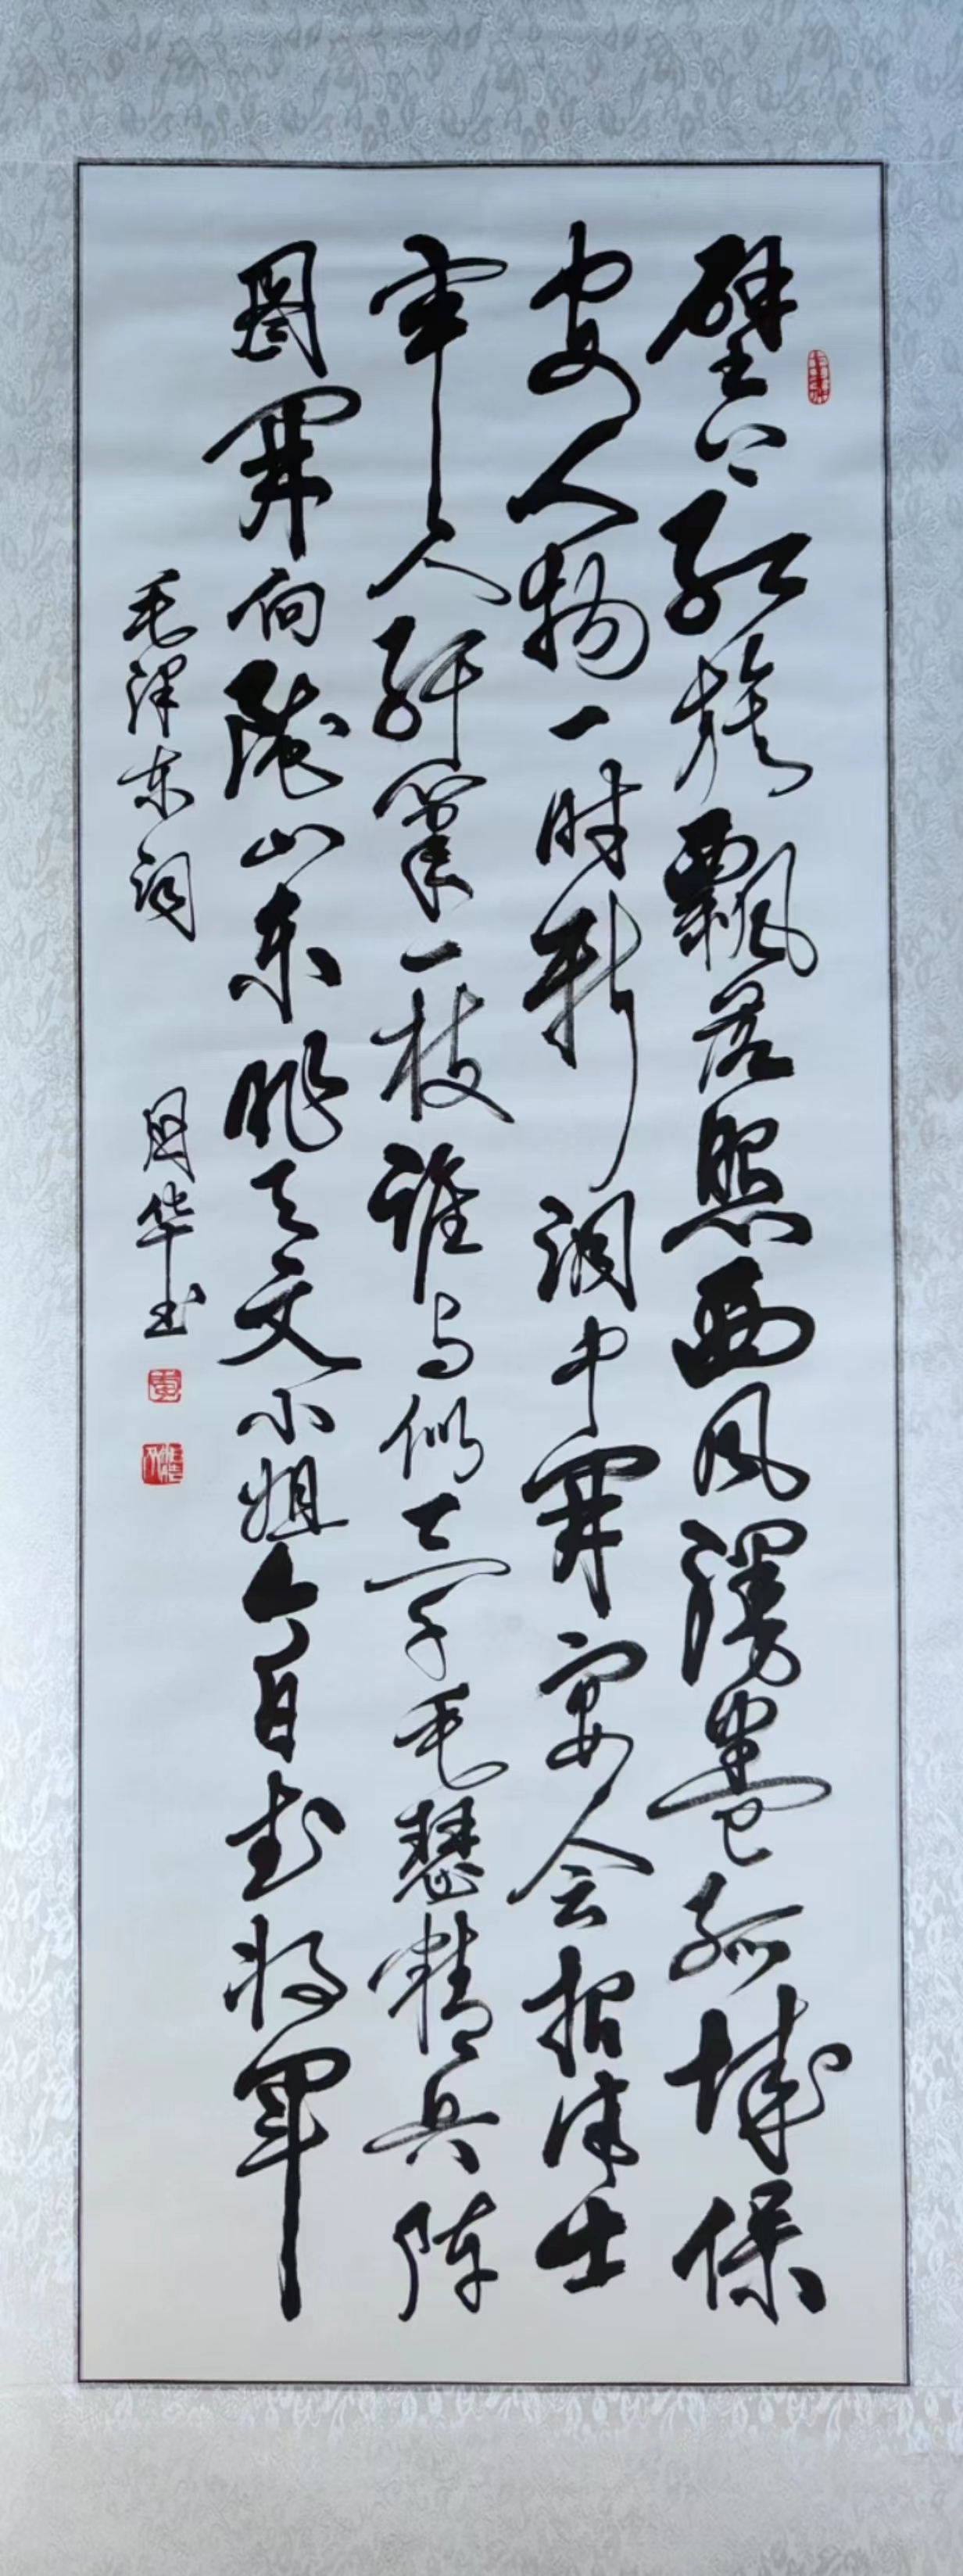 壁上红旗飘落照西风漫卷孤城保
安人物一时新洞中开宴会招待出
牢人纤笔一枝谁与似三千毛瑟精兵阵
图开向陇山东昨天文小姐今日武将军
毛泽东词 国华书